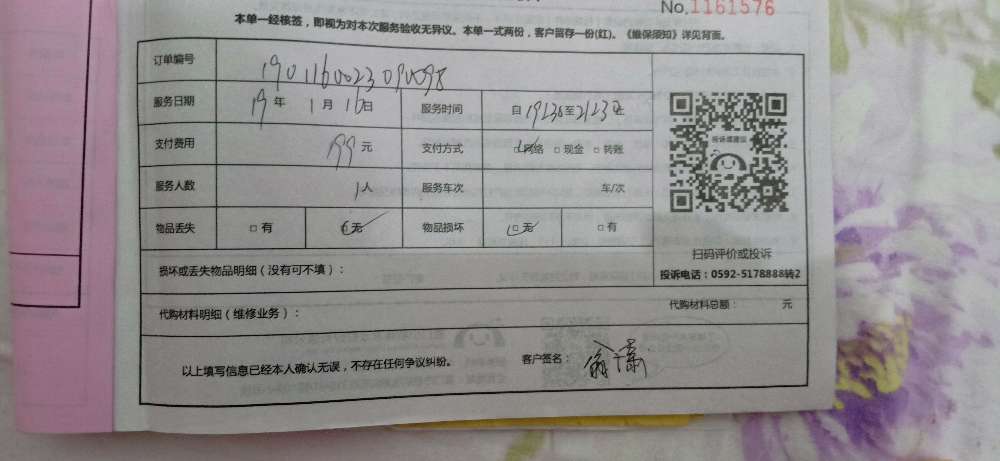 No.1161576
本单一经核签，即视为对本次服务验收无异议。本单一式两份，客户留存一份(红)。《维保须知》详见背面。
订单编号 190116002309098
服务日期 19年 1月 16日 服务时间 自 1923 至 2123 止
支付费用 199元 支付方式 □网络 □现金 □转账
服务人数 1人 服务车次 车/次
物品丢失 □有 □无 物品损坏 □无 □有
投诉或建议
扫码评价或投诉
投诉电话：0592-5178888转2
损坏或丢失物品明细（没有可不填）：
代购材料明细（维修业务）： 代购材料总额： 元
以上填写信息已经本人确认无误，不存在任何争议纠纷。 客户签名：